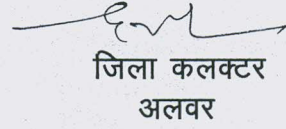 जिला कलक्टर
अलवर